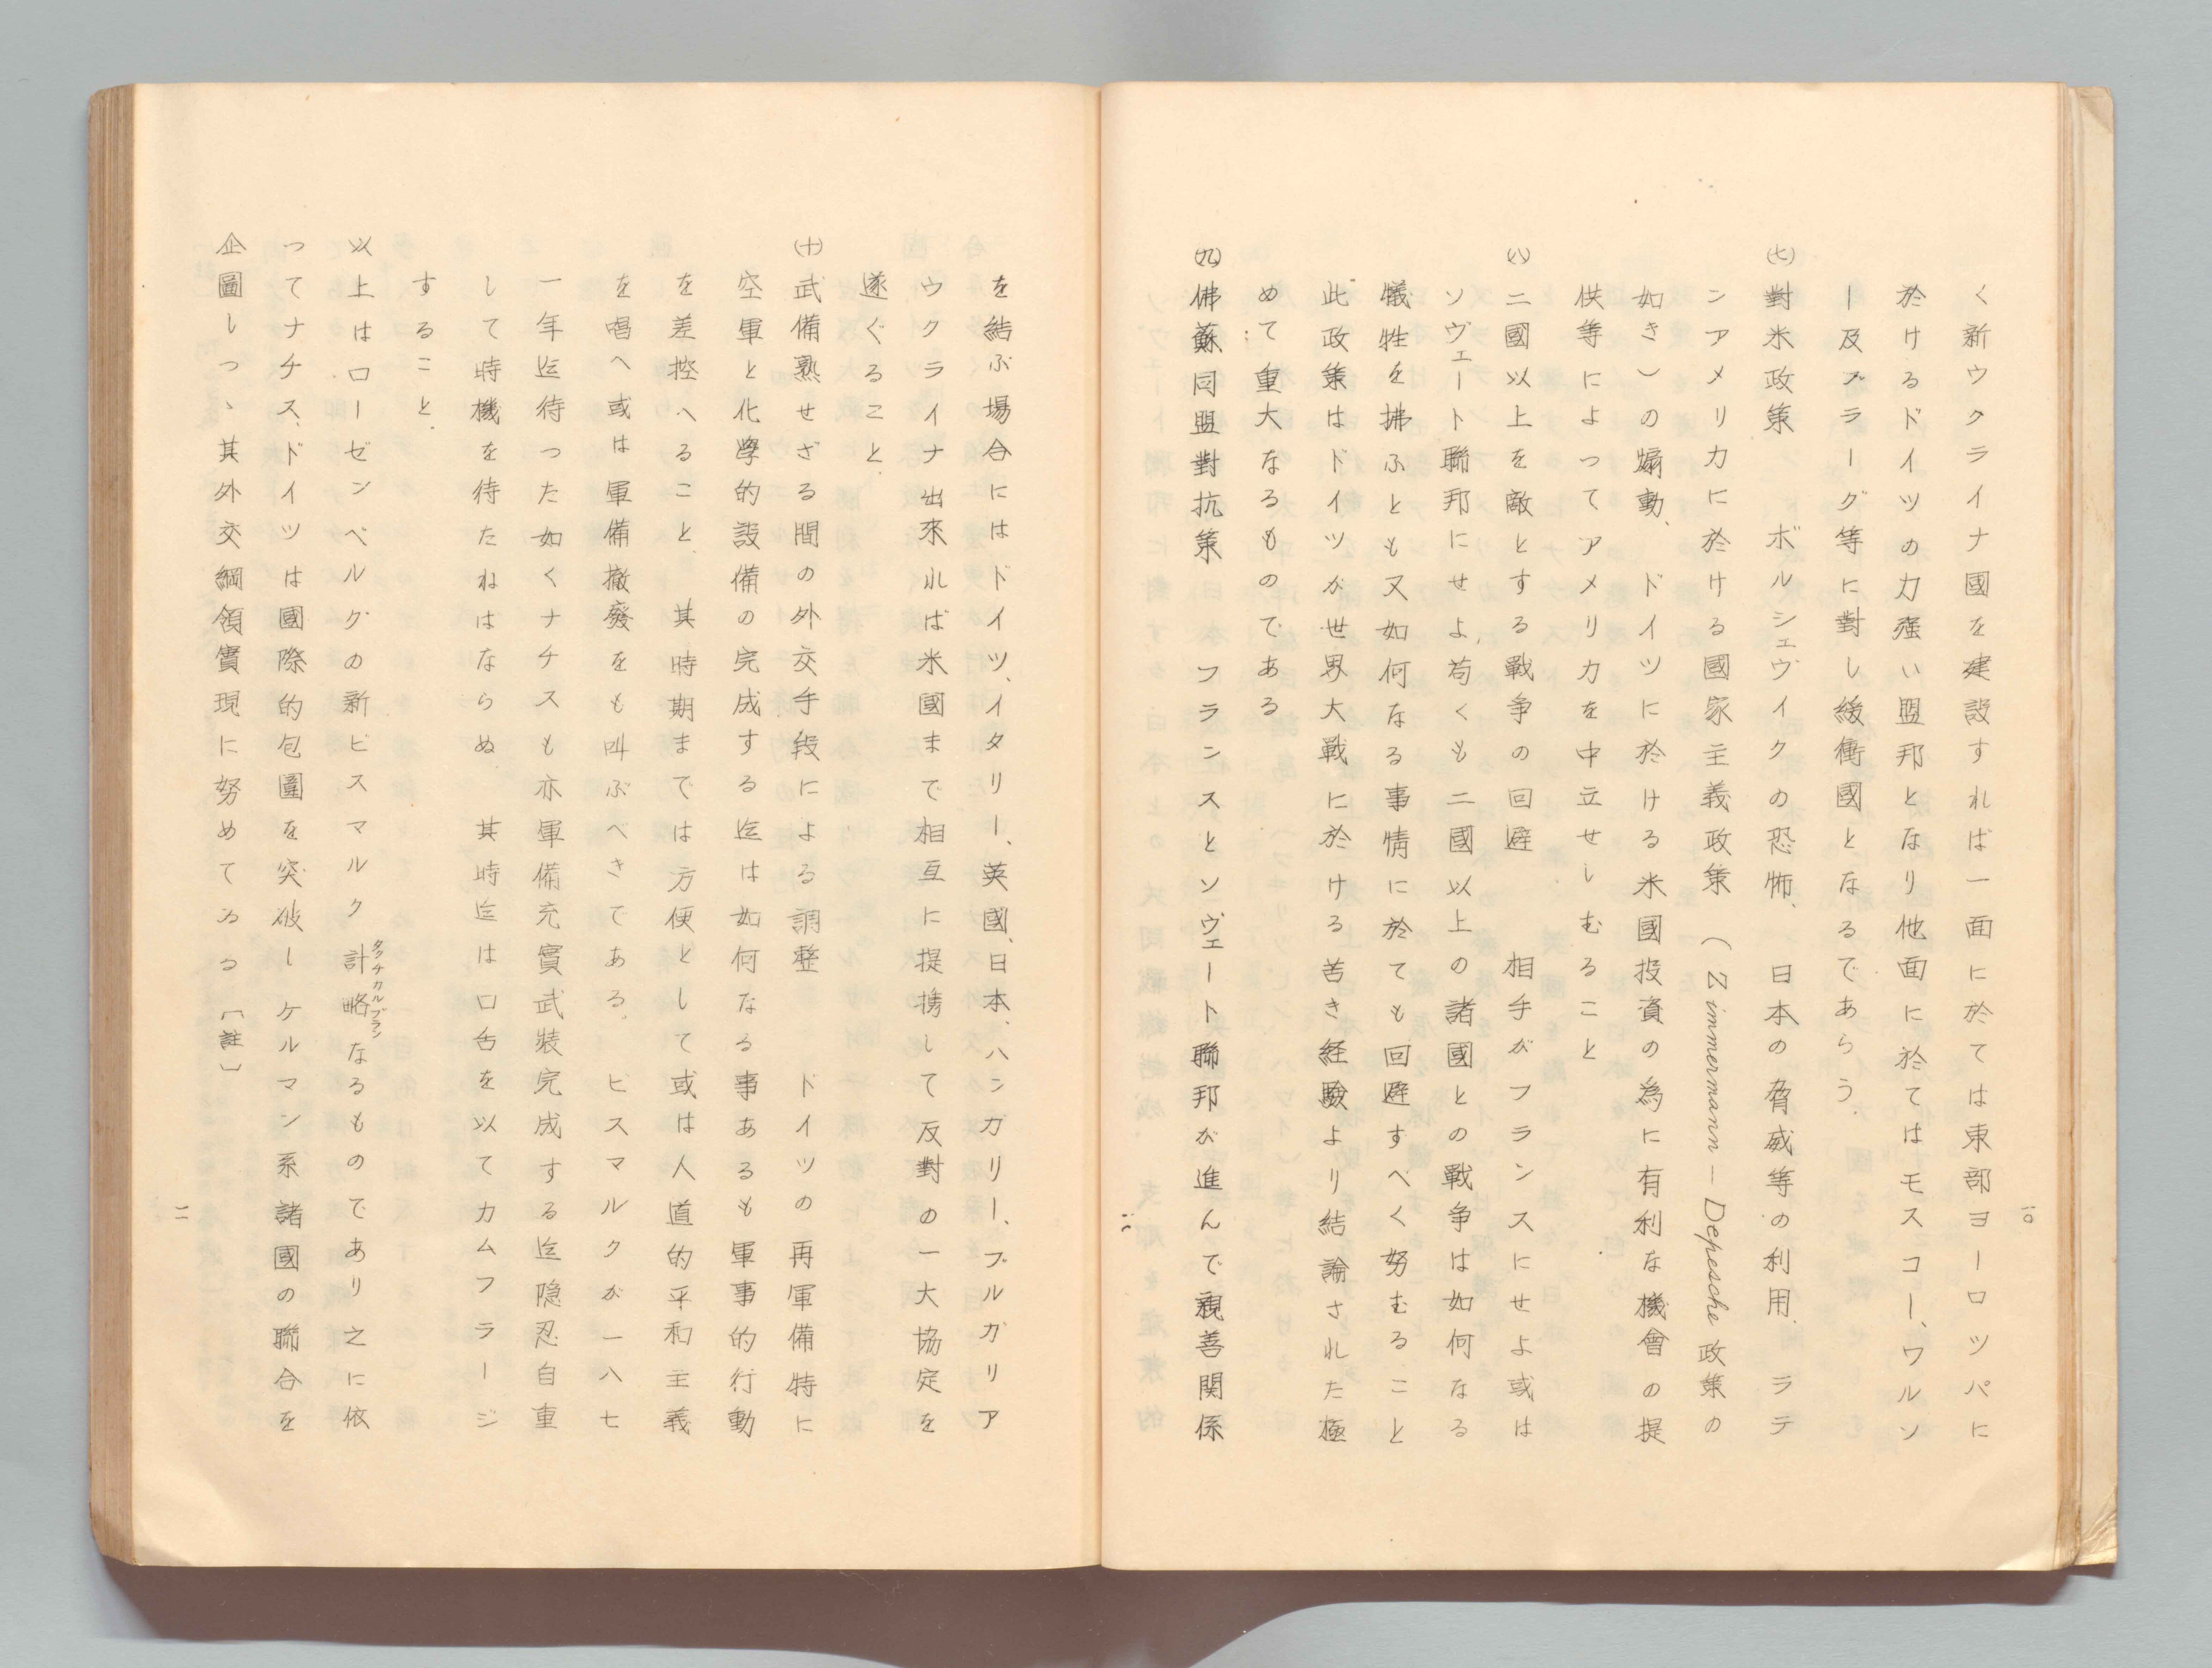 く新ウクライナ國を建設すれば一面に於ては東部ヨーロツパに
於けるドイツの力强い盟邦となり他面に於てはモスコー、ワルソ
ー及プラーグ等に對し緩衝國となるであらう.
㈦對米政策　ボルシェヴイクの恐怖、日本の脅威等の利用.　ラテ
ンアメリカに於ける國家主義政策（Zimmermann－Depesche政策の
如き）の煽動、ドイツに於ける米國投資の為に有利な機會の提
供等によつてアメリカを中立せしむること
㈧二國以上を敵とする戰争の回避　相手がフランスにせよ或は
ソヴェート聯邦にせよ、苟くも二國以上の諸國との戰争は如何なる
犠牲を拂ふとも又如何なる事情に於ても回避すべく努むること
此政策はドイツが世界大戰に於ける苦き経驗より結論された極
めて重大なるものである
㈨佛蘇同盟對抗策　フランスとソヴェート聯邦が進んで親善関係
一〇
を結ぶ場合にはドイツ、イタリー、英國、日本、ハンガリー、ブルガリア
ウクライナ出來れば米國まで相互に提携して反對の一大協定を
遂ぐること.
㈩武備熟せざる間の外交手段による調整　ドイツの再軍備特に
空軍と化學的設備の完成する迄は如何なる事あるも軍事的行動
を差控へること.　其時期までは方便として或は人道的平和主義
を唱へ或は軍備撤廢をも叫ぶべきである.　ビスマルクが一八七
一年迄待つた如くナチスも亦軍備充實武裝完成する迄隐忍自重
して時機を待たねはならぬ　其時迄は口舌を以てカムフラージ
すること.
以上はローゼンベルグの新ビスマルク計略タクチカルプランなるものであり之に依
つてナチス、ドイツは國際的包圍を突破しケルマン系諸國の聯合を
企圖しつゝ其外交綱領實現に努めてゐる〔註〕
一一